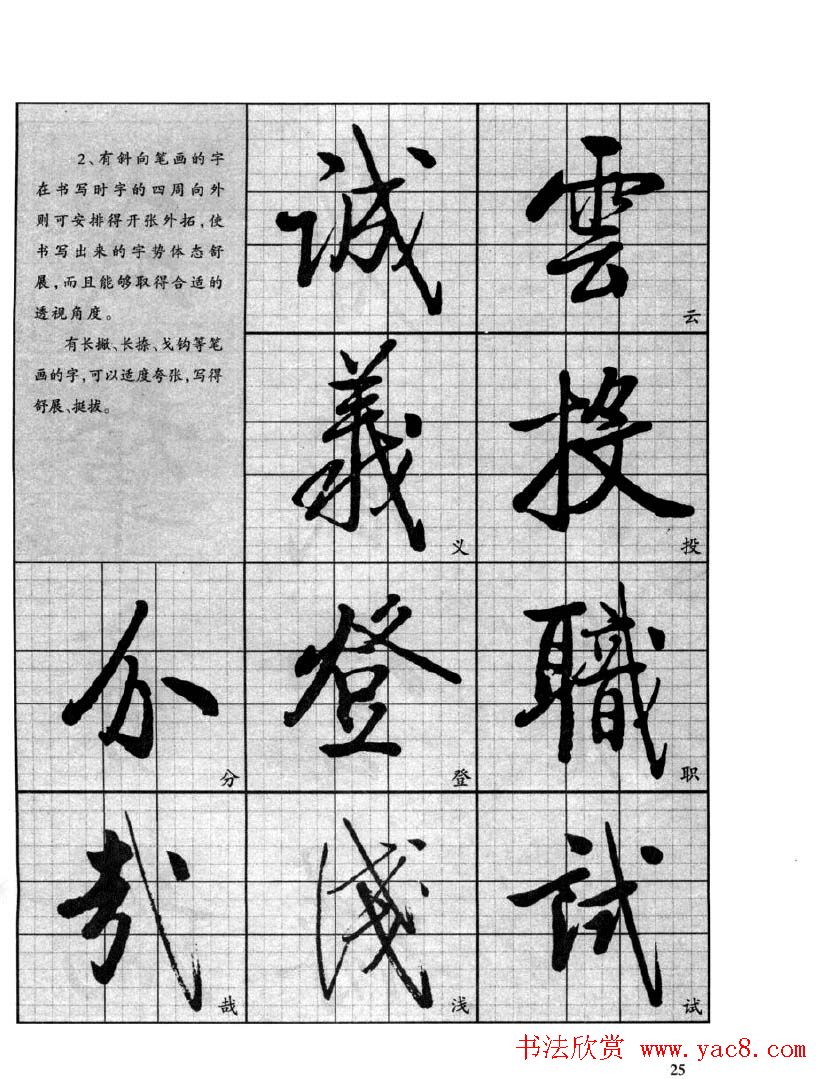 2、有斜向笔画的字
在书写时字的四周向外
则可安排得开张外拓,使
书写出来的字势体态舒
展,而且能够取得合适的
透视角度。
有长撇、长捺、戈钩等笔
画的字,可以适度夸张,写得
舒展、挺拔。
誠
雲
云
義
义
投
投
分
分
登
登
職
职
哉
哉
浅
浅
試
试
书法欣赏 www.yac8.com
25